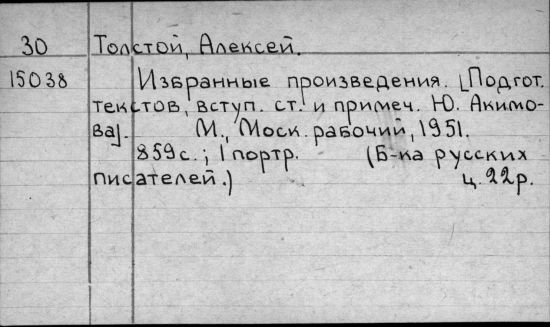 30 Толстой, Алексей.
15038 Избранные произведения. [Подгот.
текстов, вступ. ст. и примеч. Ю. Акимо-
ва]. М., Моск. рабочий, 1951.
859 с.; 1 портр. (Б-ка русских
писателей.) ц. 22 р.